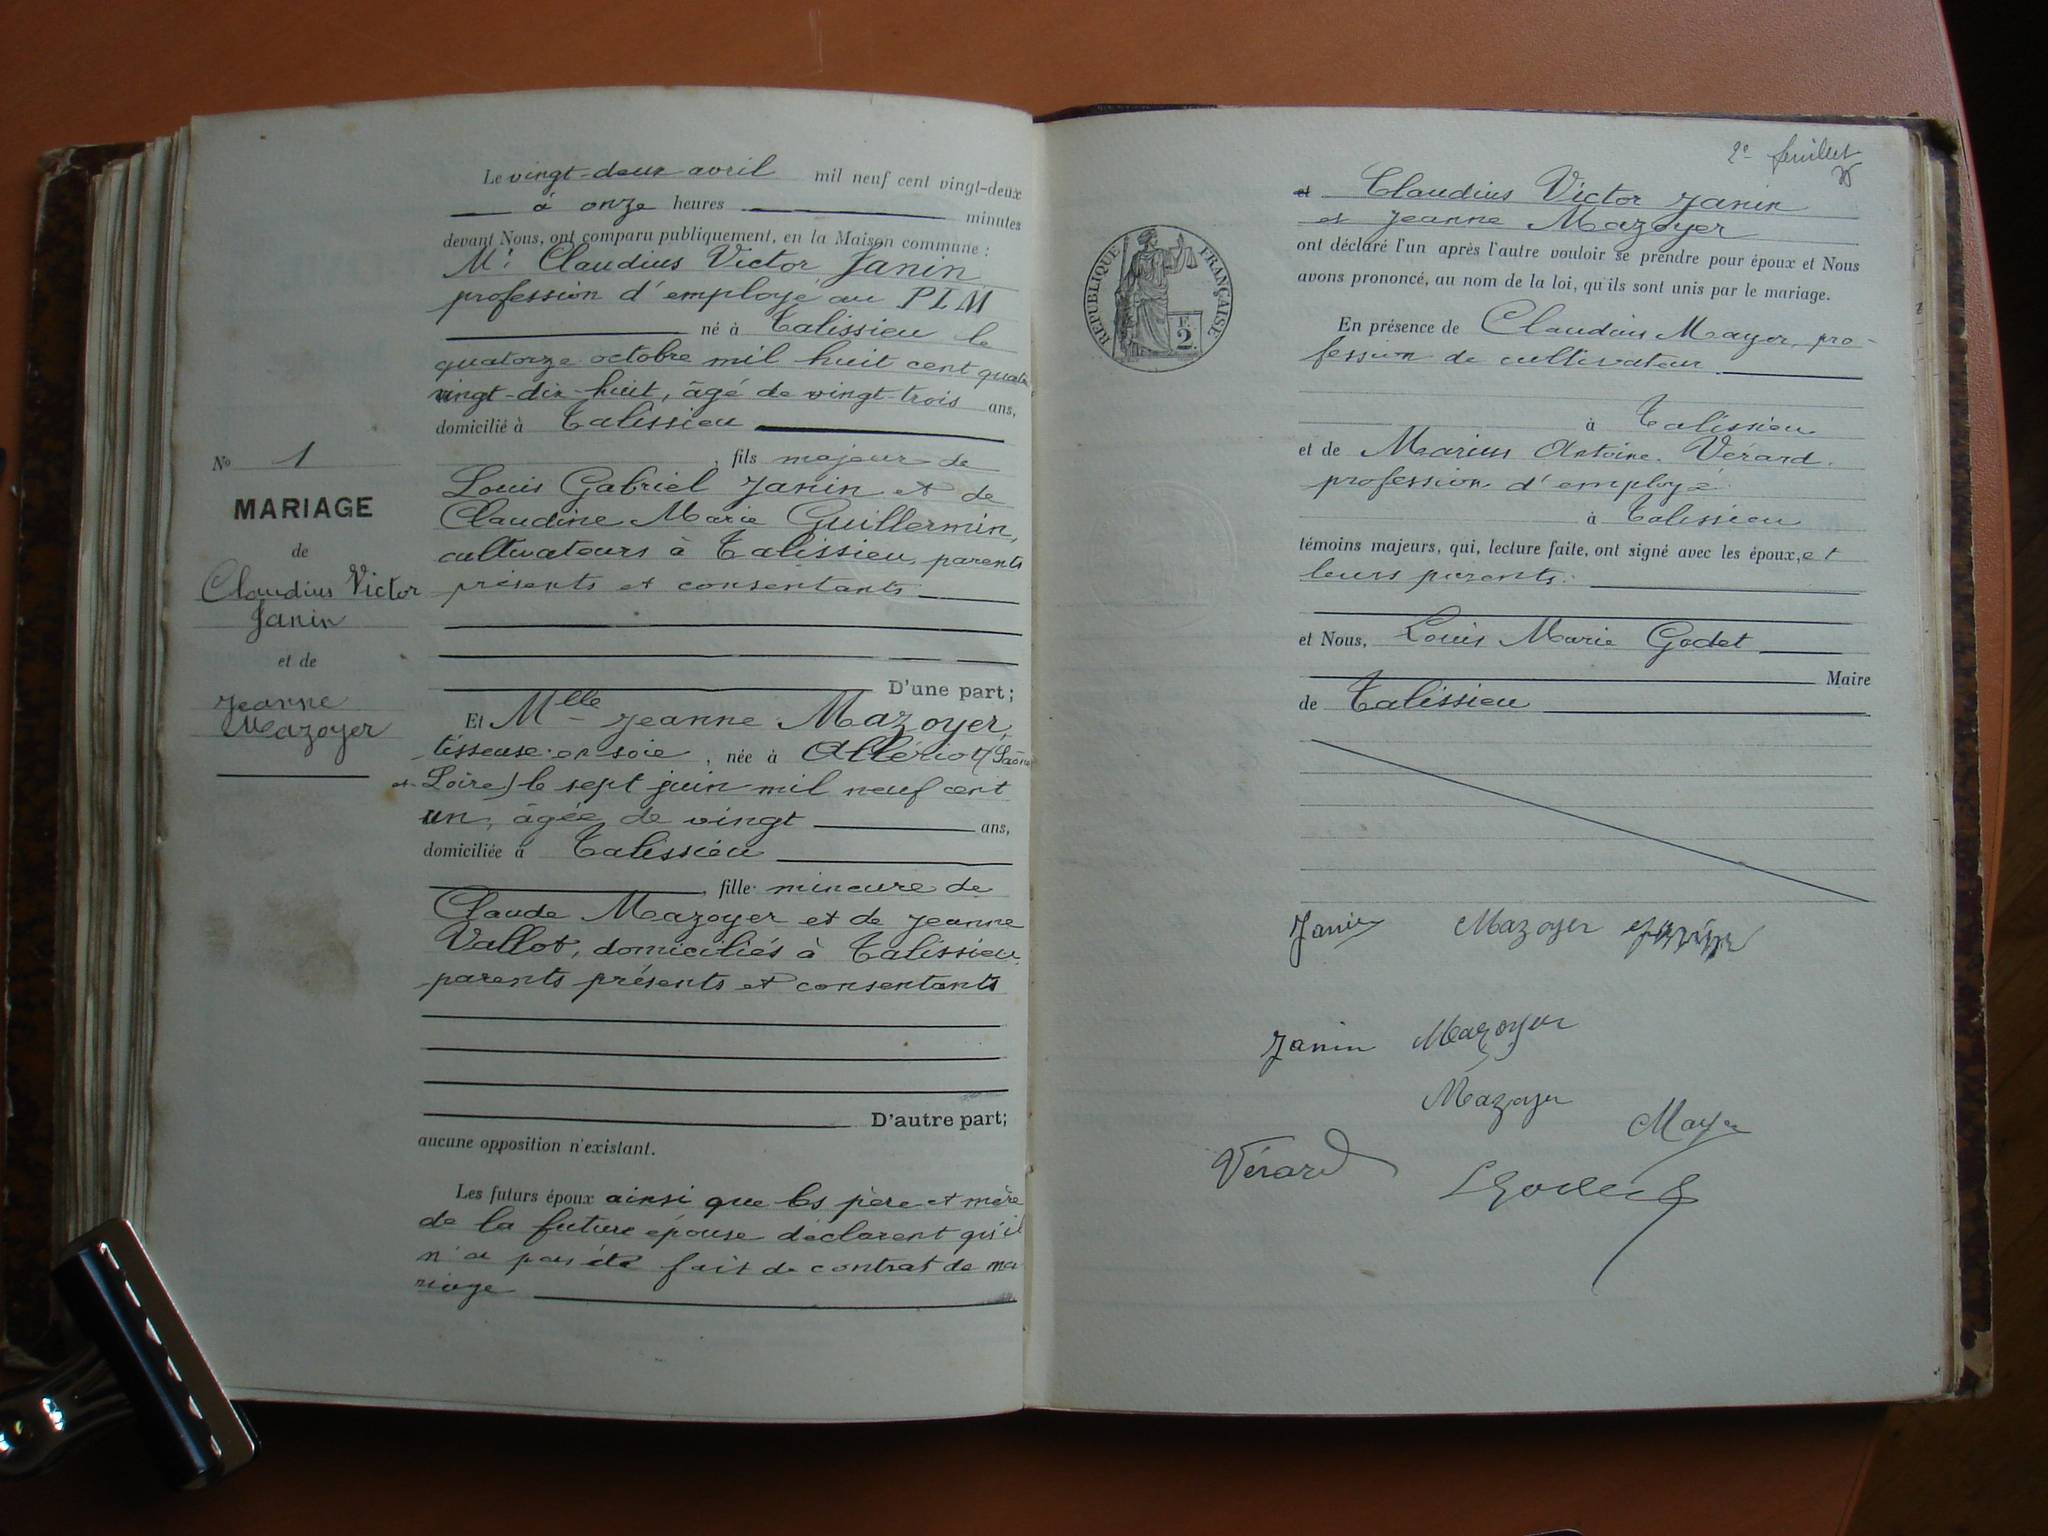 Le vingt-deux avril mil neuf cent vingt-deux
à onze heures minutes
devant Nous, ont comparu publiquement, en la Maison commune :
Mr Claudius Victor Janin
profession d'employé au PLM
né à Talissieu le
quatorze octobre mil huit cent quatre
vingt-dix-huit, âgé de vingt-trois ans,
domicilié à Talissieu
, fils majeur de
Louis Gabriel Janin et de
Claudine Marie Guillermin,
cultivateurs à Talissieu, parents
présents et consentants
D'une part;
Et Mlle Jeanne Mazoyer,
tisseuse en soie, née à Allériot (Saône
et Loire) le sept juin mil neuf cent
un, âgée de vingt ans,
domiciliée à Talissieu
, fille mineure de
Claude Mazoyer et de Jeanne
Vallot, domiciliés à Talissieu,
parents présents et consentants
D'autre part;
aucune opposition n'existant.
Les futurs époux ainsi que les père et mère
de la future épouse déclarent qu'il
n'a pas été fait de contrat de ma
riage
No 1
MARIAGE
de
Claudius Victor
Janin
et de
Jeanne
Mazoyer
2e feuillet
et Claudius Victor Janin
et Jeanne Mazoyer
ont déclaré l'un après l'autre vouloir se prendre pour époux et Nous
avons prononcé, au nom de la loi, qu'ils sont unis par le mariage.
En présence de Claudius Mayer, pro-
fession de cultivateur
à Talissieu
et de Marius Antoine Vérard,
profession d'employé
à Talissieu
témoins majeurs, qui, lecture faite, ont signé avec les époux, et
leurs parents.
et Nous, Louis Marie Godet
Maire
de Talissieu
RÉPUBLIQUE FRANÇAISE
F.
2.
Janin Mazoyer
Janin Mazoyer
Mazoyer
Mayer
Vérard
LGodet